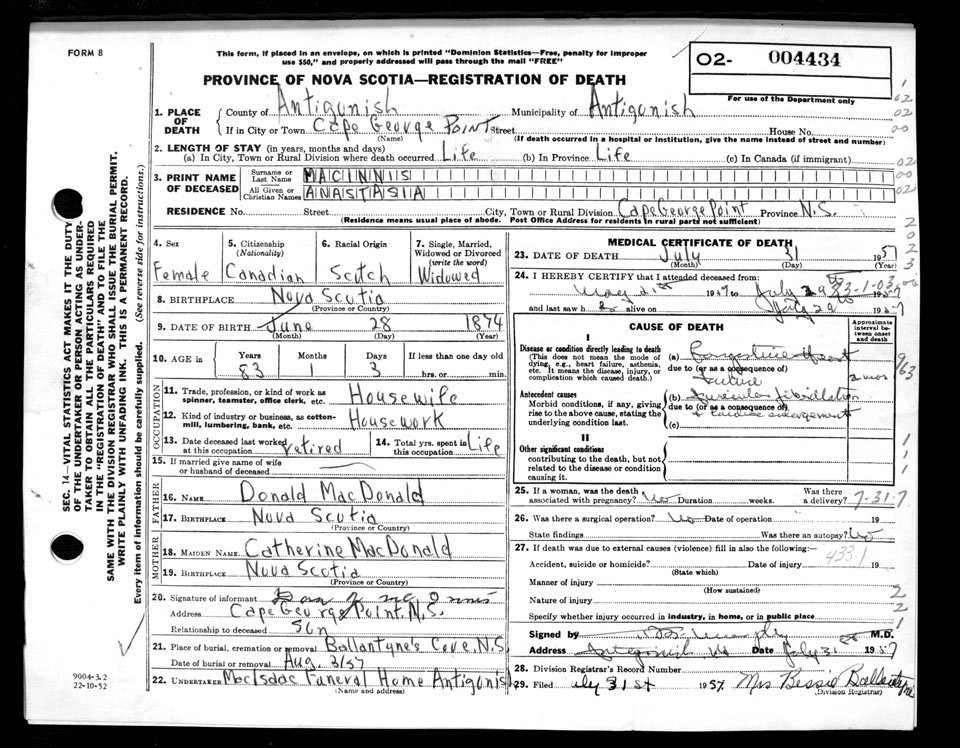 FORM 8
This form, if placed in an envelope, on which is printed "Dominion Statistics—Free, penalty for improper
use $50," and properly addressed will pass through the mail "FREE"
02- 004434
For use of the Department only
PROVINCE OF NOVA SCOTIA—REGISTRATION OF DEATH
1. PLACE OF DEATH
County of Antigonish Municipality of Antigonish
If in City or Town Cape George Point Street House No.
(Name) (If death occurred in a hospital or institution, give the name instead of street and number)
2. LENGTH OF STAY (in years, months and days)
(a) In City, Town or Rural Division where death occurred Life (b) In Province Life (c) In Canada (if immigrant)
3. PRINT NAME OF DECEASED
Surname or Last Name MACINNIS
All Given or Christian Names ANASTASIA
RESIDENCE No. Street City, Town or Rural Division Cape George Point Province N.S.
(Residence means usual place of abode. Post Office Address for residents in rural parts not sufficient)
4. Sex 5. Citizenship (Nationality) 6. Racial Origin 7. Single, Married, Widowed or Divorced (write the word)
Female Canadian Scotch Widowed
8. BIRTHPLACE Nova Scotia
(Province or Country)
9. DATE OF BIRTH June 28 1874
(Month) (Day) (Year)
10. AGE in Years Months Days If less than one day old
83 1 3 hrs. or min.
OCCUPATION
11. Trade, profession, or kind of work as spinner, teamster, office clerk, etc. Housewife
12. Kind of industry or business, as cotton-mill, lumbering, bank, etc. Housework
13. Date deceased last worked at this occupation retired 14. Total yrs. spent in this occupation Life
15. If married give name of wife or husband of deceased
FATHER
16. NAME Donald MacDonald
17. BIRTHPLACE Nova Scotia
(Province or Country)
MOTHER
18. MAIDEN NAME Catherine MacDonald
19. BIRTHPLACE Nova Scotia
(Province or Country)
20. Signature of informant
Address Cape George Point, N.S.
Relationship to deceased Son
21. Place of burial, cremation or removal Ballantyne's Cove, N.S.
Date of burial or removal Aug. 3/57
22. UNDERTAKER MacIsaac Funeral Home Antigonish
(Name and address)
MEDICAL CERTIFICATE OF DEATH
23. DATE OF DEATH July 31 1957
(Month) (Day) (Year)
24. I HEREBY CERTIFY that I attended deceased from:
May 21st 1957 to July 29 1957
and last saw h alive on July 29 1957
CAUSE OF DEATH
Approximate interval between onset and death
Disease or condition directly leading to death
(This does not mean the mode of dying, e.g., heart failure, asthenia, etc. It means the disease, injury, or complication which caused death.)
(a) Congestive Heart
due to (or as a consequence of)
failure 2 mos
Antecedent causes
Morbid conditions, if any, giving rise to the above cause, stating the underlying condition last.
(b) Auricular fibrillation
due to (or as a consequence of)
cardiac enlargement
(c)
II
Other significant conditions
contributing to the death, but not related to the disease or condition causing it.
963
25. If a woman, was the death associated with pregnancy? No Duration weeks. Was there a delivery?
7-31-7
26. Was there a surgical operation? No Date of operation 19
State findings Was there an autopsy? No
27. If death was due to external causes (violence) fill in also the following:—
433.1
Accident, suicide or homicide? Date of injury 19
(State which)
Manner of injury
(How sustained)
Nature of injury
Specify whether injury occurred in industry, in home, or in public place
Signed by M.D.
Address Antigonish, NS Date July 31 1957
28. Division Registrar's Record Number
29. Filed July 31st 1957 Mrs Bessie Ballantyne
(Division Registrar)
SEC. 14—VITAL STATISTICS ACT MAKES IT THE DUTY
OF THE UNDERTAKER OR PERSON ACTING AS UNDER-
TAKER TO OBTAIN ALL THE PARTICULARS REQUIRED
IN THE "REGISTRATION OF DEATH" AND TO FILE THE
SAME WITH THE DIVISION REGISTRAR WHO SHALL ISSUE THE BURIAL PERMIT.
WRITE PLAINLY WITH UNFADING INK. THIS IS A PERMANENT RECORD.
Every item of information should be carefully supplied. (See reverse side for instructions.)
9004-3.2
22-10-52